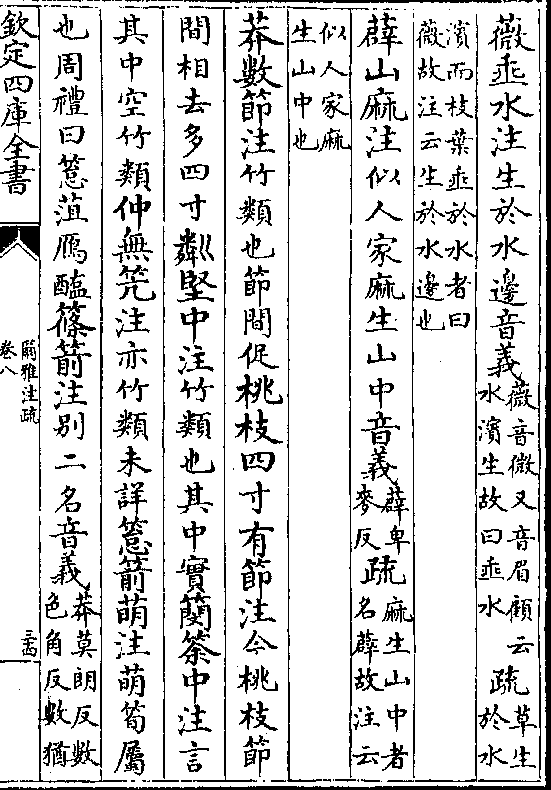 薇垂水注生於水邊音義薇音微又音眉顧云水濱生故曰垂水疏草生於水
濱而枝葉垂於水者曰薇故注云生於水邊也
薜山麻注似人家麻生山中音義薜卑麥反疏麻生山中者名薜故注云
似人家麻生山中也
莽數節注竹類也節間促桃枝四寸有節注今桃枝節
間相去多四寸粼堅中注竹類也其中實簢筡中注言
其中空竹類仲無笐注亦竹類未詳䈚箭萌注萌筍屬
也周禮曰䈚菹鴈醢篠箭注别二名音義莽莫朗反數色角反數猶
欽定四庫全書
爾雅注疏
卷八
三十四